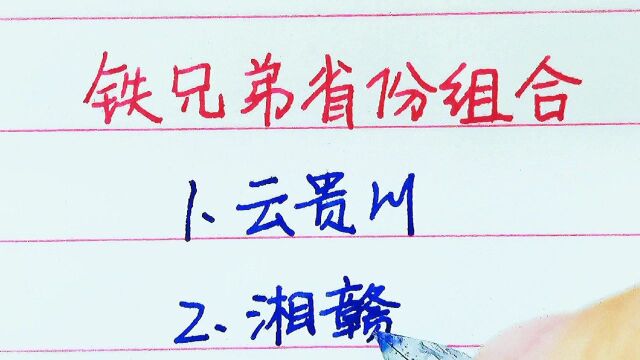 铁兄弟省份组合
1、云贵川
2、湘赣